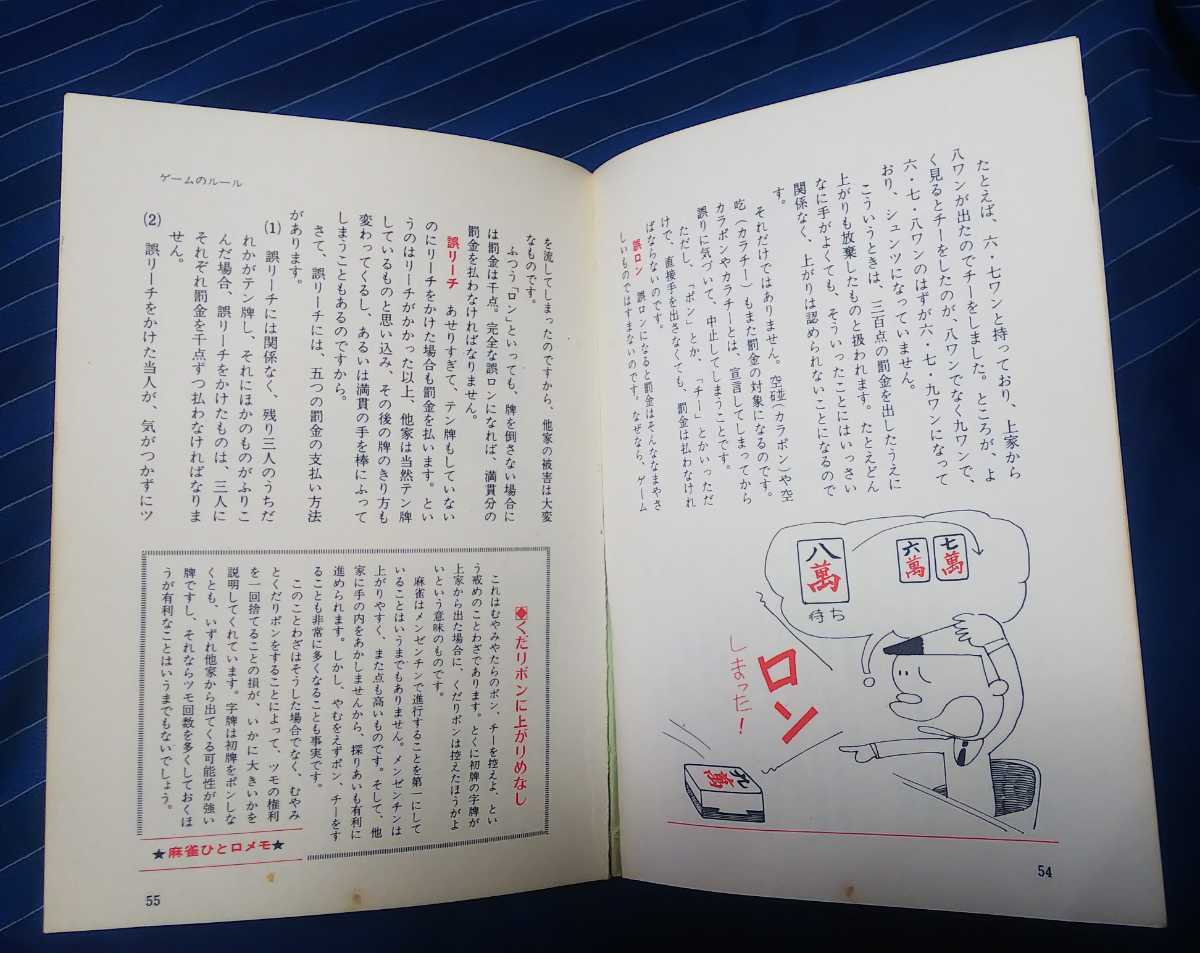 たとえば、六・七ワンと持っており、上家から
八ワンが出たのでチーをしました。ところが、よ
く見るとチーをしたのが、八ワンでなく九ワンで、
六・七・八ワンのはずが六・七・九ワンになって
おり、シュンツになっていません。
こういうときは、三百点の罰金を出したうえに
上がりも放棄したものと扱われます。たとえどん
なに手がよくても、そういったことにはいっさい
関係なく、上がりは認められないことになるので
す。
それだけではありません。空碰(カラポン)や空
吃(カラチー)もまた罰金の対象になるのです。
カラポンやカラチーとは、宣言してしまってから
誤りに気づいて、中止してしまうことです。
ただし、「ポン」とか、「チー」とかいっただ
けで、直接手を出さなくても、罰金は払わなけれ
ばならないのです。
誤ロン 誤ロンになると罰金はそんななまやさ
しいものではすまないのです。なぜなら、ゲーム
八萬
待ち
六萬
七萬
?
ロン
しまった!
九萬
54
ゲームのルール
を流してしまったのですから、他家の被害は大変
なものです。
ふつう「ロン」といっても、牌を倒さない場合に
は罰金は千点。完全な誤ロンになれば、満貫分の
罰金を払わなければなりません。
誤リーチ あせりすぎて、テン牌もしていない
のにリーチをかけた場合も罰金を払います。とい
うのはリーチがかかった以上、他家は当然テン牌
しているものと思い込み、その後の牌のきり方も
変わってくるし、あるいは満貫の手を棒にふって
しまうこともあるのですから。
さて、誤リーチには、五つの罰金の支払い方法
があります。
(1) 誤リーチには関係なく、残り三人のうちだ
れかがテン牌し、それにほかのものがふりこ
んだ場合、誤リーチをかけたものは、三人に
それぞれ罰金を千点ずつ払わなければなりま
せん。
(2) 誤リーチをかけた当人が、気がつかずにツ
◆くだりポンに上がりめなし
これはむやみやたらのポン、チーを控えよ、とい
う戒めのことわざであります。とくに初牌の字牌が
上家から出た場合に、くだりポンは控えたほうがよ
いという意味のものです。
麻雀はメンゼンチンで進行することを第一にして
いることはいうまでもありません。メンゼンチンは
上がりやすく、また点も高いものです。そして、他
家に手の内をあかしませんから、探りあいも有利に
進められます。しかし、やむをえずポン、チーをす
ることも非常に多くなることも事実です。
このことわざはそうした場合でなく、むやみ
とくだりポンをすることによって、ツモの権利
を一回捨てることの損が、いかに大きいかを
説明してくれています。字牌は初牌をポンしな
くとも、いずれ他家から出てくる可能性が強い
牌ですし、それならツモ回数を多くしておくほ
うが有利なことはいうまでもないでしょう。
★麻雀ひと口メモ★
55